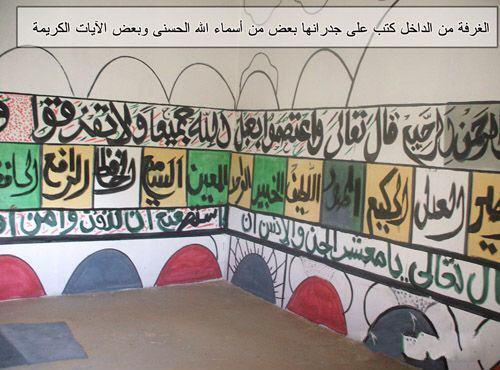 الغرفة من الداخل كتب على جدرانها بعض من أسماء الله الحسنى وبعض الآيات الكريمة
الرحمن الرحيم قال تعالى واعتصموا بحبل الله جميعا ولا تفرقوا و
العدل الحكيم اللطيف الخبير المعين السميع الحافظ الرافع
قال تعالى يا معشر الجن والانس ان استطعتم ان تنفذوا من أق